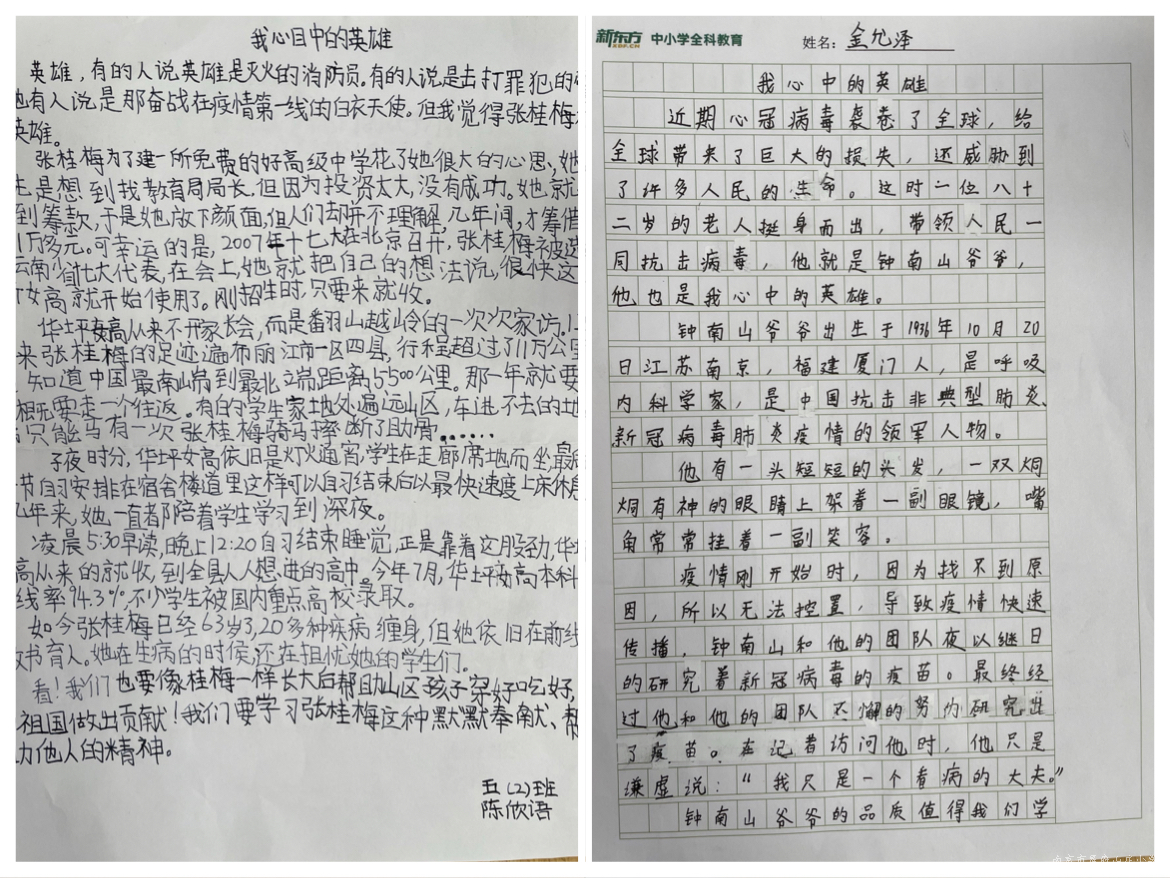 我心目中的英雄
英雄，有的人说英雄是灭火的消防员.有的人说是击打罪犯的
也有人说是那奋战在疫情第一线的白衣天使。但我觉得张桂梅
英雄。
张桂梅为了建一所免费的好高级中学花了她很大的心思，她
是想到找教育局局长.但因为投资太大，没有成功。她就
到筹款，于是她放下颜面，但人们却并不理解，几年间，才筹借
1万多元。可幸运的是，2007年十七大在北京召开，张桂梅被选
云南省十七大代表，在会上，她就把自己的想法说，很快这
女高就开始使用了。刚招生时，只要来就收。
华坪女高从来不开家长会，而是翻山越岭的一次次家访。
来张桂梅的足迹遍布丽江市一区四县，行程超过了11万公里
知道中国最南端到最北端距离5500公里。那一年就要
相既要走一个往返。有的学生家地处遍远山区，车进不去的地
只能马有一次张桂梅骑马摔断了肋骨......
子夜时分，华坪女高依旧是灯火通宵，学生在走廊席地而坐，最后
节自习安排在宿舍楼道里这样可以自习结束后以最快速度上床休息
几年来，她一直都陪着学生学习到深夜。
凌晨5:30早读，晚上12:20自习结束睡觉，正是靠着这股劲，华坪
高从来的就收，到全县人人想进的高中，今年7月，华坪女高本科
线率94.3%，不少学生被国内重点高校录取。
如今张桂梅已经63岁3，20多种疾病缠身，但她依旧在前线
教书育人。她在生病的时候，还在担忧她的学生们。
看！我们也要像桂梅一样长大后帮助山区孩子穿好吃好，
祖国做出贡献！我们要学习张桂梅这种默默奉献、帮
力他人的精神。
五（2）班
陈欣语
新东方 XDF.CN 中小学全科教育 姓名：金允泽
我心中的英雄
近期心冠病毒袭卷了全球，给
全球带来了巨大的损失，还威胁到
了许多人民的生命。这时一位八十
二岁的老人挺身而出，带领人民一
同抗击病毒，他就是钟南山爷爷，
他也是我心中的英雄。
钟南山爷爷出生于1936年10月20
日江苏南京，福建厦门人，是呼吸
内科学家，是中国抗击非典型肺炎、
新冠病毒肺炎疫情的领军人物。
他有一头短短的长发，一双炯
炯有神的眼睛上架着一副眼镜，嘴
角常常挂着一副笑容。
疫情刚开始时，因为找不到原
因，所以无法控置，导致疫情快速
传播，钟南山和他的团队夜以继日
的研究着新冠病毒的疫苗。最终经
过他和他的团队不懈的努力研究出
了疫苗。在记者访问他时，他只是
谦虚说：“我只是一个看病的大夫。”
钟南山爷爷的品质值得我们学